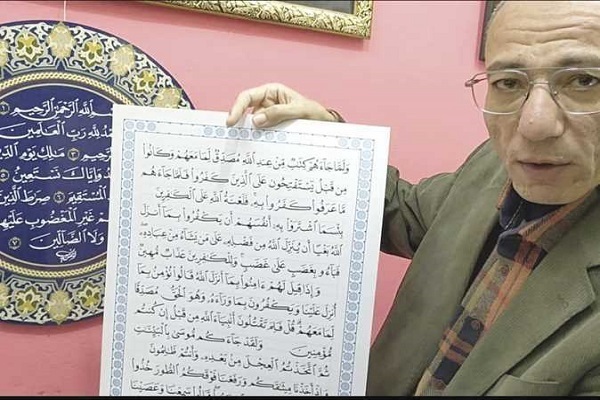 ٱللَّهِ ٱلرَّحْمَٰنِ ٱلرَّحِيمِ
لِلَّهِ رَبِّ ٱلْعَٰلَمِينَ
مَٰلِكِ يَوْمِ ٱلدِّينِ
وَإِيَّاكَ نَسْتَعِينُ
ٱلْمُسْتَقِيمَ ٦ صِرَٰطَ ٱلَّذِينَ
غَيْرِ ٱلْمَغْضُوبِ عَلَيْهِمْ
وَلَا ٱلضَّآلِّينَ ٧
وَلَمَّا جَآءَهُمْ كِتَٰبٌ مِّنْ عِندِ ٱللَّهِ مُصَدِّقٌ لِّمَا مَعَهُمْ وَكَانُوا۟
مِن قَبْلُ يَسْتَفْتِحُونَ عَلَى ٱلَّذِينَ كَفَرُوا۟ فَلَمَّا جَآءَهُم
مَّا عَرَفُوا۟ كَفَرُوا۟ بِهِۦ فَلَعْنَةُ ٱللَّهِ عَلَى ٱلْكَٰفِرِينَ
بِئْسَمَا ٱشْتَرَوْا۟ بِهِۦٓ أَنفُسَهُمْ أَن يَكْفُرُوا۟ بِمَآ أَنزَلَ
ٱللَّهُ بَغْيًا أَن يُنَزِّلَ ٱللَّهُ مِن فَضْلِهِۦ عَلَىٰ مَن يَشَآءُ مِنْ عِبَادِهِۦ
فَبَآءُو بِغَضَبٍ عَلَىٰ غَضَبٍ وَلِلْكَٰفِرِينَ عَذَابٌ مُّهِينٌ
وَإِذَا قِيلَ لَهُمْ ءَامِنُوا۟ بِمَآ أَنزَلَ ٱللَّهُ قَالُوا۟ نُؤْمِنُ بِمَآ
أُنزِلَ عَلَيْنَا وَيَكْفُرُونَ بِمَا وَرَآءَهُۥ وَهُوَ ٱلْحَقُّ مُصَدِّقًا
لِّمَا مَعَهُمْ قُلْ فَلِمَ تَقْتُلُونَ أَنۢبِيَآءَ ٱللَّهِ مِن قَبْلُ إِن كُنتُم
مُّؤْمِنِينَ وَلَقَدْ جَآءَكُم مُّوسَىٰ بِٱلْبَيِّنَٰتِ
ثُمَّ ٱتَّخَذْتُمُ ٱلْعِجْلَ مِنۢ بَعْدِهِۦ وَأَنتُمْ ظَٰلِمُونَ
وَإِذْ أَخَذْنَا مِيثَٰقَكُمْ وَرَفَعْنَا فَوْقَكُمُ ٱلطُّورَ خُذُوا۟
قَالُوا۟ سَمِعْنَا وَعَصَيْنَا